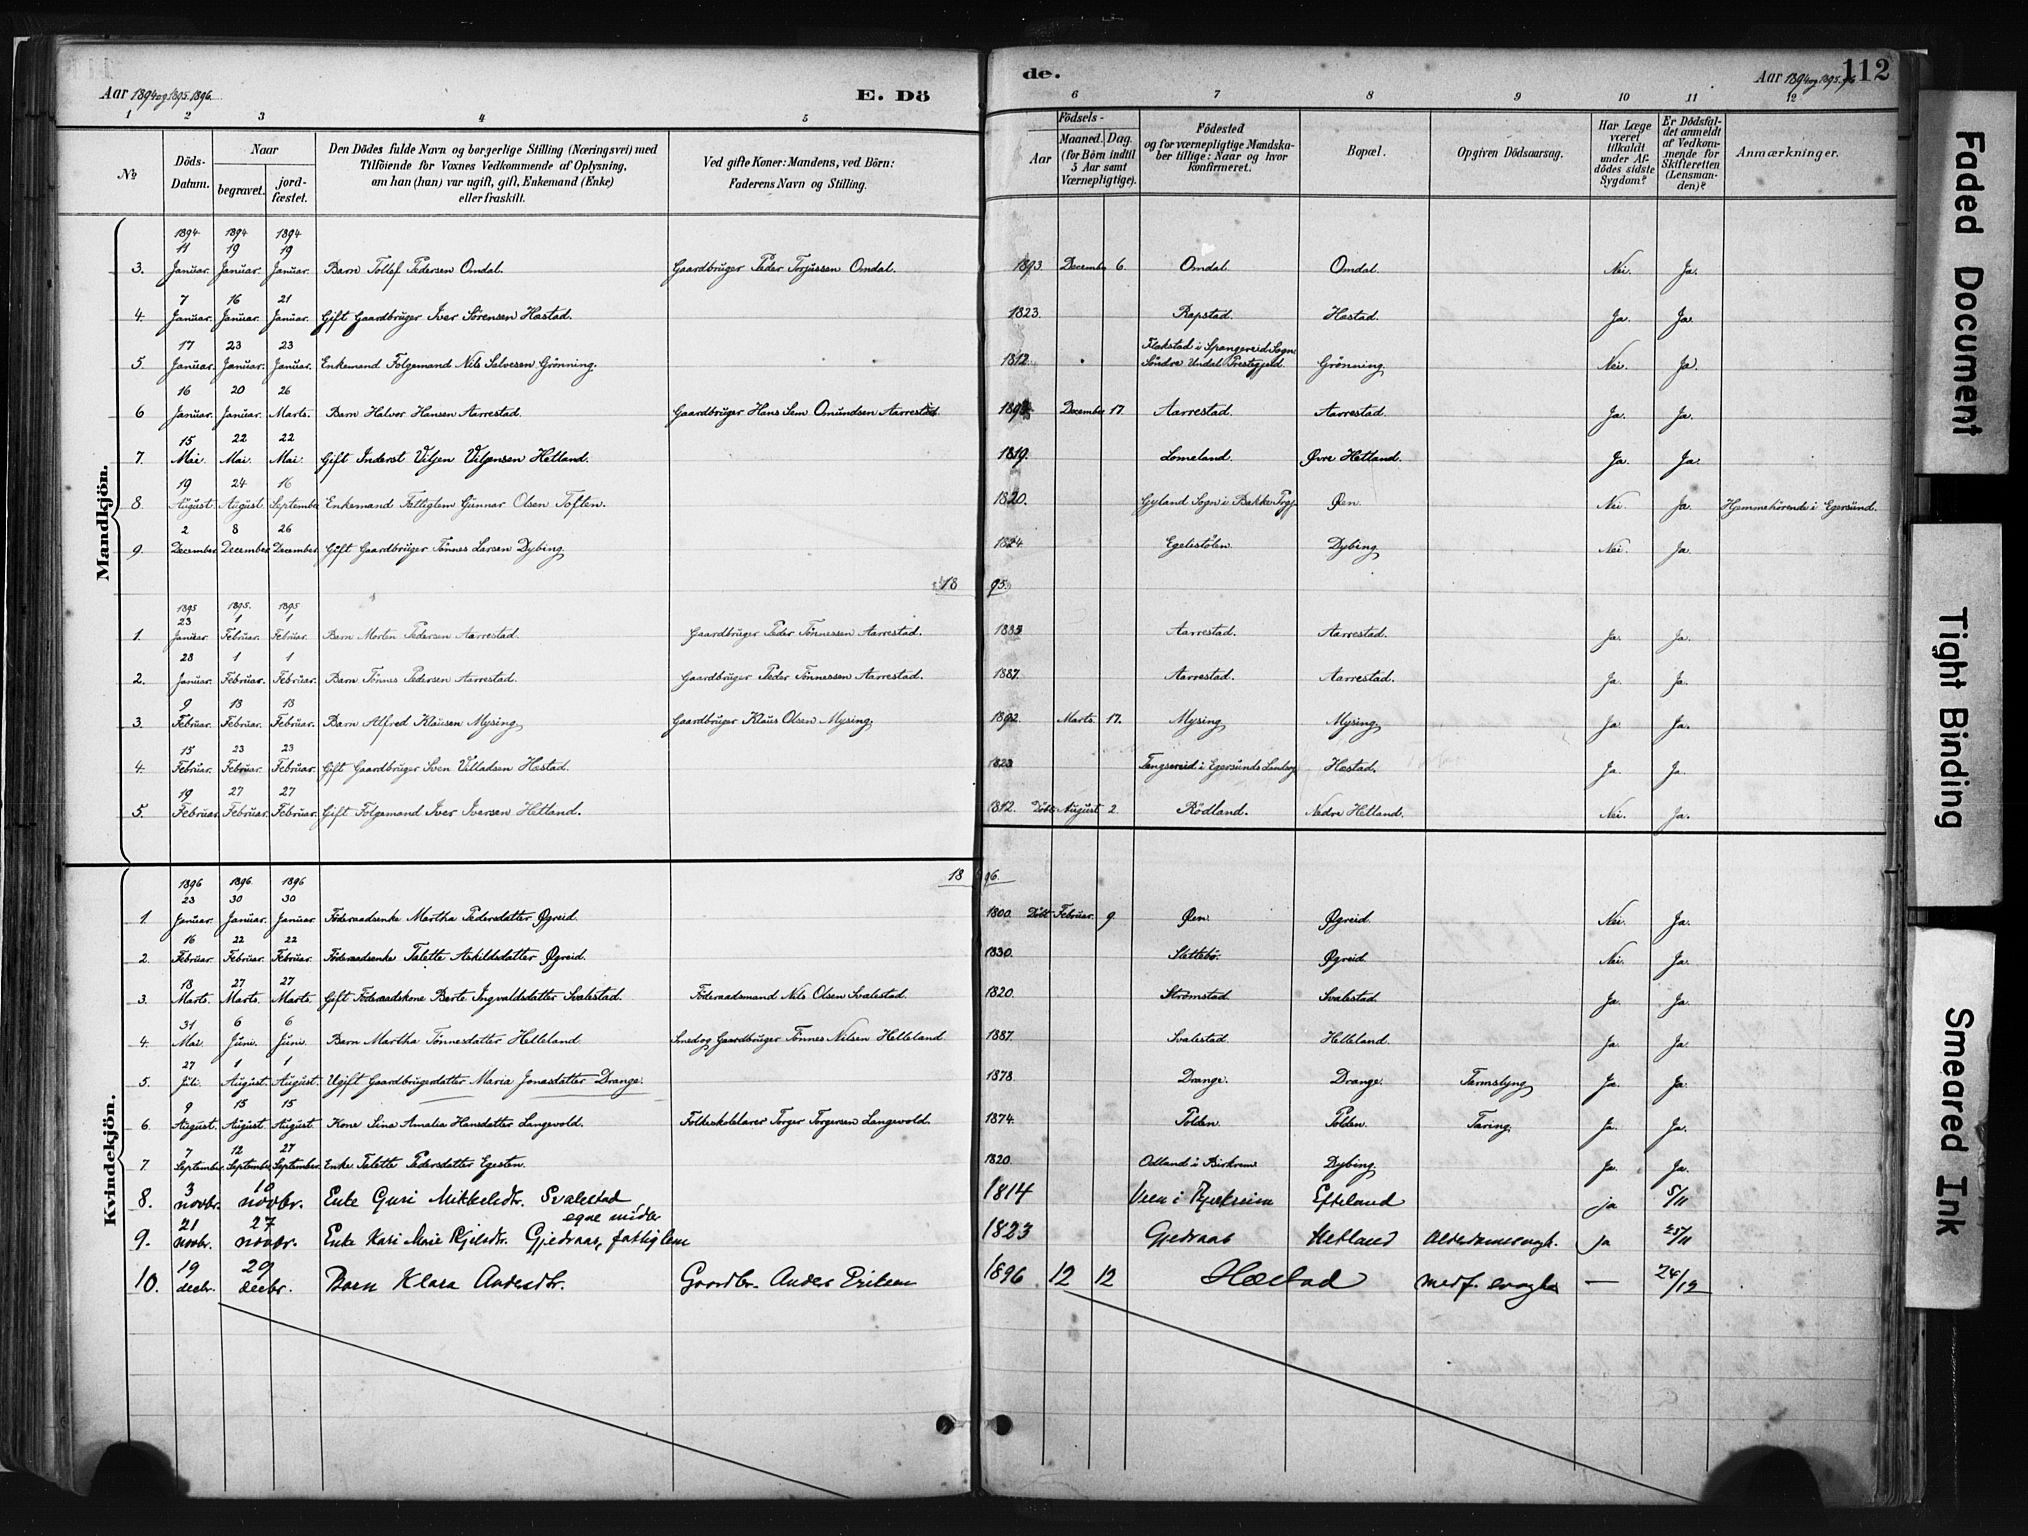 Aar 1894 og 1895. 1896.
E. Dö
de.
Aar 1894 og 1895. 96
112
1 2 3 4 5 6 7 8 9 10 11 12
№
Döds-Datum.
Naar
begravet.
jord-fæstet.
Den Dödes fulde Navn og borgerlige Stilling (Næringsvei) med
Tilföiende for Voxnes Vedkommende af Oplysning,
om han (hun) var ugift, gift, Enkemand (Enke)
eller fraskilt.
Ved gifte Koner: Mandens, ved Börn:
Faderens Navn og Stilling.
Födsels-
Aar
Maaned. Dag.
(for Börn indtil
5 Aar samt
Værnepligtige).
Födested
og for værnepligtige Mandska-
ber tillige: Naar og hvor
konfirmeret.
Bopæl.
Opgiven Dödsaarsag.
Har Læge
været
tilkaldt
under Af-
dödes sidste
Sygdom?
Er Dödsfal-
det anmeldt
af Vedkom-
mende for
Skifteretten
(Lensman-
den)?
Anmærkninger.
Mandkjön.
1894 1894 1894
11 19 19
3. Januar. Januar. Januar. Barn Tollef Pedersen Omdal. Gaardbruger Peder Torjussen Omdal. 1893. December 6. Omdal. Omdal. Nei. Ja.
7 16 21
4. Januar. Januar. Januar. Gift Gaardbruger Iver Sörensen Hæstad. 1823. Rapstad. Hæstad. Ja. Ja.
17 23 23
Flakstad i Spangereid Sogn
5. Januar. Januar. Januar. Enkemand Folgemand Nils Salvesen Grönning. 1812. Söndre Undal Prestegjeld. Grönning. Nei. Ja.
16 20 26
6 Januar. Januar. Marts. Barn Halvor Hansen Aarrestad. Gaardbruger Hans Sem Omundsen Aarrestad December 17. Aarrestad. Aarrestad. Ja. Ja.
15 22 22
7. Mai. Mai. Mai. Gift Inderst Viljen Hetland. 1819. Lomeland. Øvre Hetland. Ja. Ja.
19 24 16
8. August. August. September Enkemand Fattiglem Gunnar Olsen Toften. 1820. Gyland Sogn i Bakke Prgj. Øen. Nei. Ja. Hjemmehörende i Egersund.
2 8 26
9. December. December. December. Gift Gaardbruger Tönnes Larsen Dybing 1824. Egelistölen Dybing Nei. Ja.
18 95.
1895 1895. 1895
23 1 1
1. Januar. Februar. Februar. Barn Morten Pedersen Aarrestad. Gaardbruger Peder Tönnessen Aarrestad. Aarrestad. Aarrestad. Ja. Ja.
28 1 1
2. Januar. Februar. Februar. Barn Tönnes Pedersen Aarrestad. Gaardbruger Peder Tönnessen Aarrestad. 1887. Aarrestad. Aarrestad. Ja. Ja.
9 13 13
3. Februar. Februar. Februar. Barn Alfred Klausen Mysing. Gaardbruger Klaus Olsen Mysing. 1892. Marts. 17. Mysing. Mysing. Ja. Ja.
15 23 23
4. Februar. Februar. Februar. Gift Gaardbruger Sven Villadsen Hæstad. 1823 Tengsereid i Egersunds Landsogn Hæstad. Ja. Ja.
19 27 27
5. Februar. Februar. Februar. Gift Folgemand Iver Iversen Hetland. 1812. Döbt August 2. Rödland. Nedre Hetland. Nei. Ja.
Kvindekjön.
18 96.
1896 1896. 1896
23 30 30
1. Januar. Januar. Januar. Föderaadsenke Martha Pedersdatter Øgreid. 1800. Döbt Februar. 9 Øen. Øgreid. Nei. Ja.
16 22 22
2. Februar. Februar. Februar. Föderaadsenke Talette Askildsdatter Øgreid. 1830. Slettebö. Øgreid. Nei. Ja.
18 27 27
3. Marts. Marts. Marts. Gift Föderaadskone Berte Ingvaldsdatter Svalestad. Föderaadsmand Nils Olsen Svalestad. 1820. Strömstad. Svalestad. Ja. Ja.
31 6 6
4. Mai. Juni. Juni. Barn Martha Tönnesdatter Helleland. Smed og Gaardbruger Tönnes Nilsen Helleland 1887. Svalestad. Helleland. Ja. Ja.
27 1 1
5. Juli. August. August. Ugift Gaardbrugerdatter Maria Jonasdatter Drange. 1878. Drange. Drange. Tarmslyng Ja. Ja.
9 15 15
6. August. August. August. Kone Sina Amalia Hansdatter Langevold. Folkeskolelærer Torger Torgersen Langevold. 1874. Polden. Polden. Tæring. Ja. Ja.
7 12 27
7. September. September. September. Enke Talette Pedersdatter Egesten. 1820. Odland i Birkrem. Dybing. Ja. Ja.
3 10
8. novbr. novbr. Enke Guri Mikkelsdtr. Svalestad 1814 Veen i Bjerkreim Efteland ja 5/11
egne midler
21 27
9. novbr. novbr. Enke Kari Marie Kjelsdtr. Gjedraas, fattiglem 1823 Gjedraas Hetland Alderdomssvagh. ja 25/11
19 29
10. decbr. decbr. Barn Klara Andersdtr. Gaardbr. Anders Eriksen 1896 12 12 Hæstad medf. svaghed — 24/12
Faded Document
Tight Binding
Smeared Ink